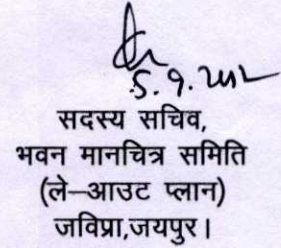 5.9.2012
सदस्य सचिव,
भवन मानचित्र समिति
(ले–आउट प्लान)
जविप्रा,जयपुर।